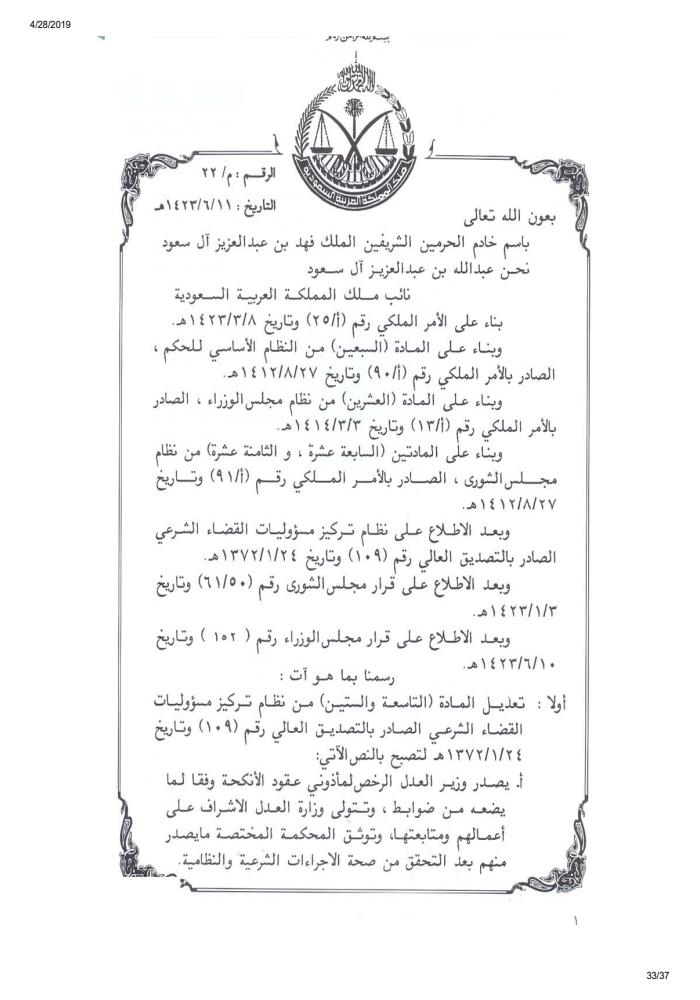 4/28/2019
الرقـــم : م/ ٢٢
التاريخ : ١٤٢٣/٦/١١هـ
بعون الله تعالى
باسم خادم الحرمين الشريفين الملك فهد بن عبدالعزيز آل سعود
نحـن عبدالله بن عبدالعزيـز آل سـعود
نائب مـلك المملكـة العربية السـعودية
بناء على الأمر الملكي رقم (أ/٢٥) وتاريخ ١٤٢٣/٣/٨هـ.
وبناء عـلى المـادة (السبعين) مـن النظـام الأساسي للـحكم ،
الصادر بالأمر الملكي رقم (أ/٩٠) وتاريخ ١٤١٢/٨/٢٧هـ.
وبناء على المادة (العشرين) من نظام مجلس الوزراء ، الصادر
بالأمر الملكي رقم (أ/١٣) وتاريخ ١٤١٤/٣/٣هـ.
وبناء على المادتين (السابعة عشرة ، و الثامنة عشرة) من نظام
مجــلس الشورى ، الصـادر بالأمــر المـلكي رقــم (أ/٩١) وتــاريخ
١٤١٢/٨/٢٧هـ.
وبعـد الاطـلاع عـلى نظـام تـركيز مسؤوليـات القضـاء الشـرعي
الصادر بالتصديق العالي رقم (١٠٩) وتاريخ ١٣٧٢/١/٢٤هـ.
وبعد الاطلاع على قرار مجلس الشورى رقم (٦١/٥٠) وتاريخ
١٤٢٣/١/٣هـ.
وبعـد الاطـلاع عـلى قـرار مجلس الوزراء رقـم ( ١٥٢ ) وتـاريخ
١٤٢٣/٦/١٠هـ.
رسمنا بما هـو آت :
أولا : تعديـل المـادة (التاسعة والستين) مـن نظـام تـركيز مسؤوليـات
القضـاء الشرعـي الصادر بالتصديـق العالي رقم (١٠٩) وتـاريخ
١٣٧٢/١/٢٤هـ لتصبح بالنص الآتي:
أ. يصـدر وزيـر العدل الرخص لمأذوني عقود الأنكحة وفقا لـما
يضعـه مـن ضوابـط ، وتـتولى وزارة العدل الاشراف عـلى
أعمـالهم ومتابعتهـا، وتوثـق المحكمـة المختصـة مايصدر
منهم بعد التحقق من صحة الاجراءات الشرعية والنظامية.
١
33/37